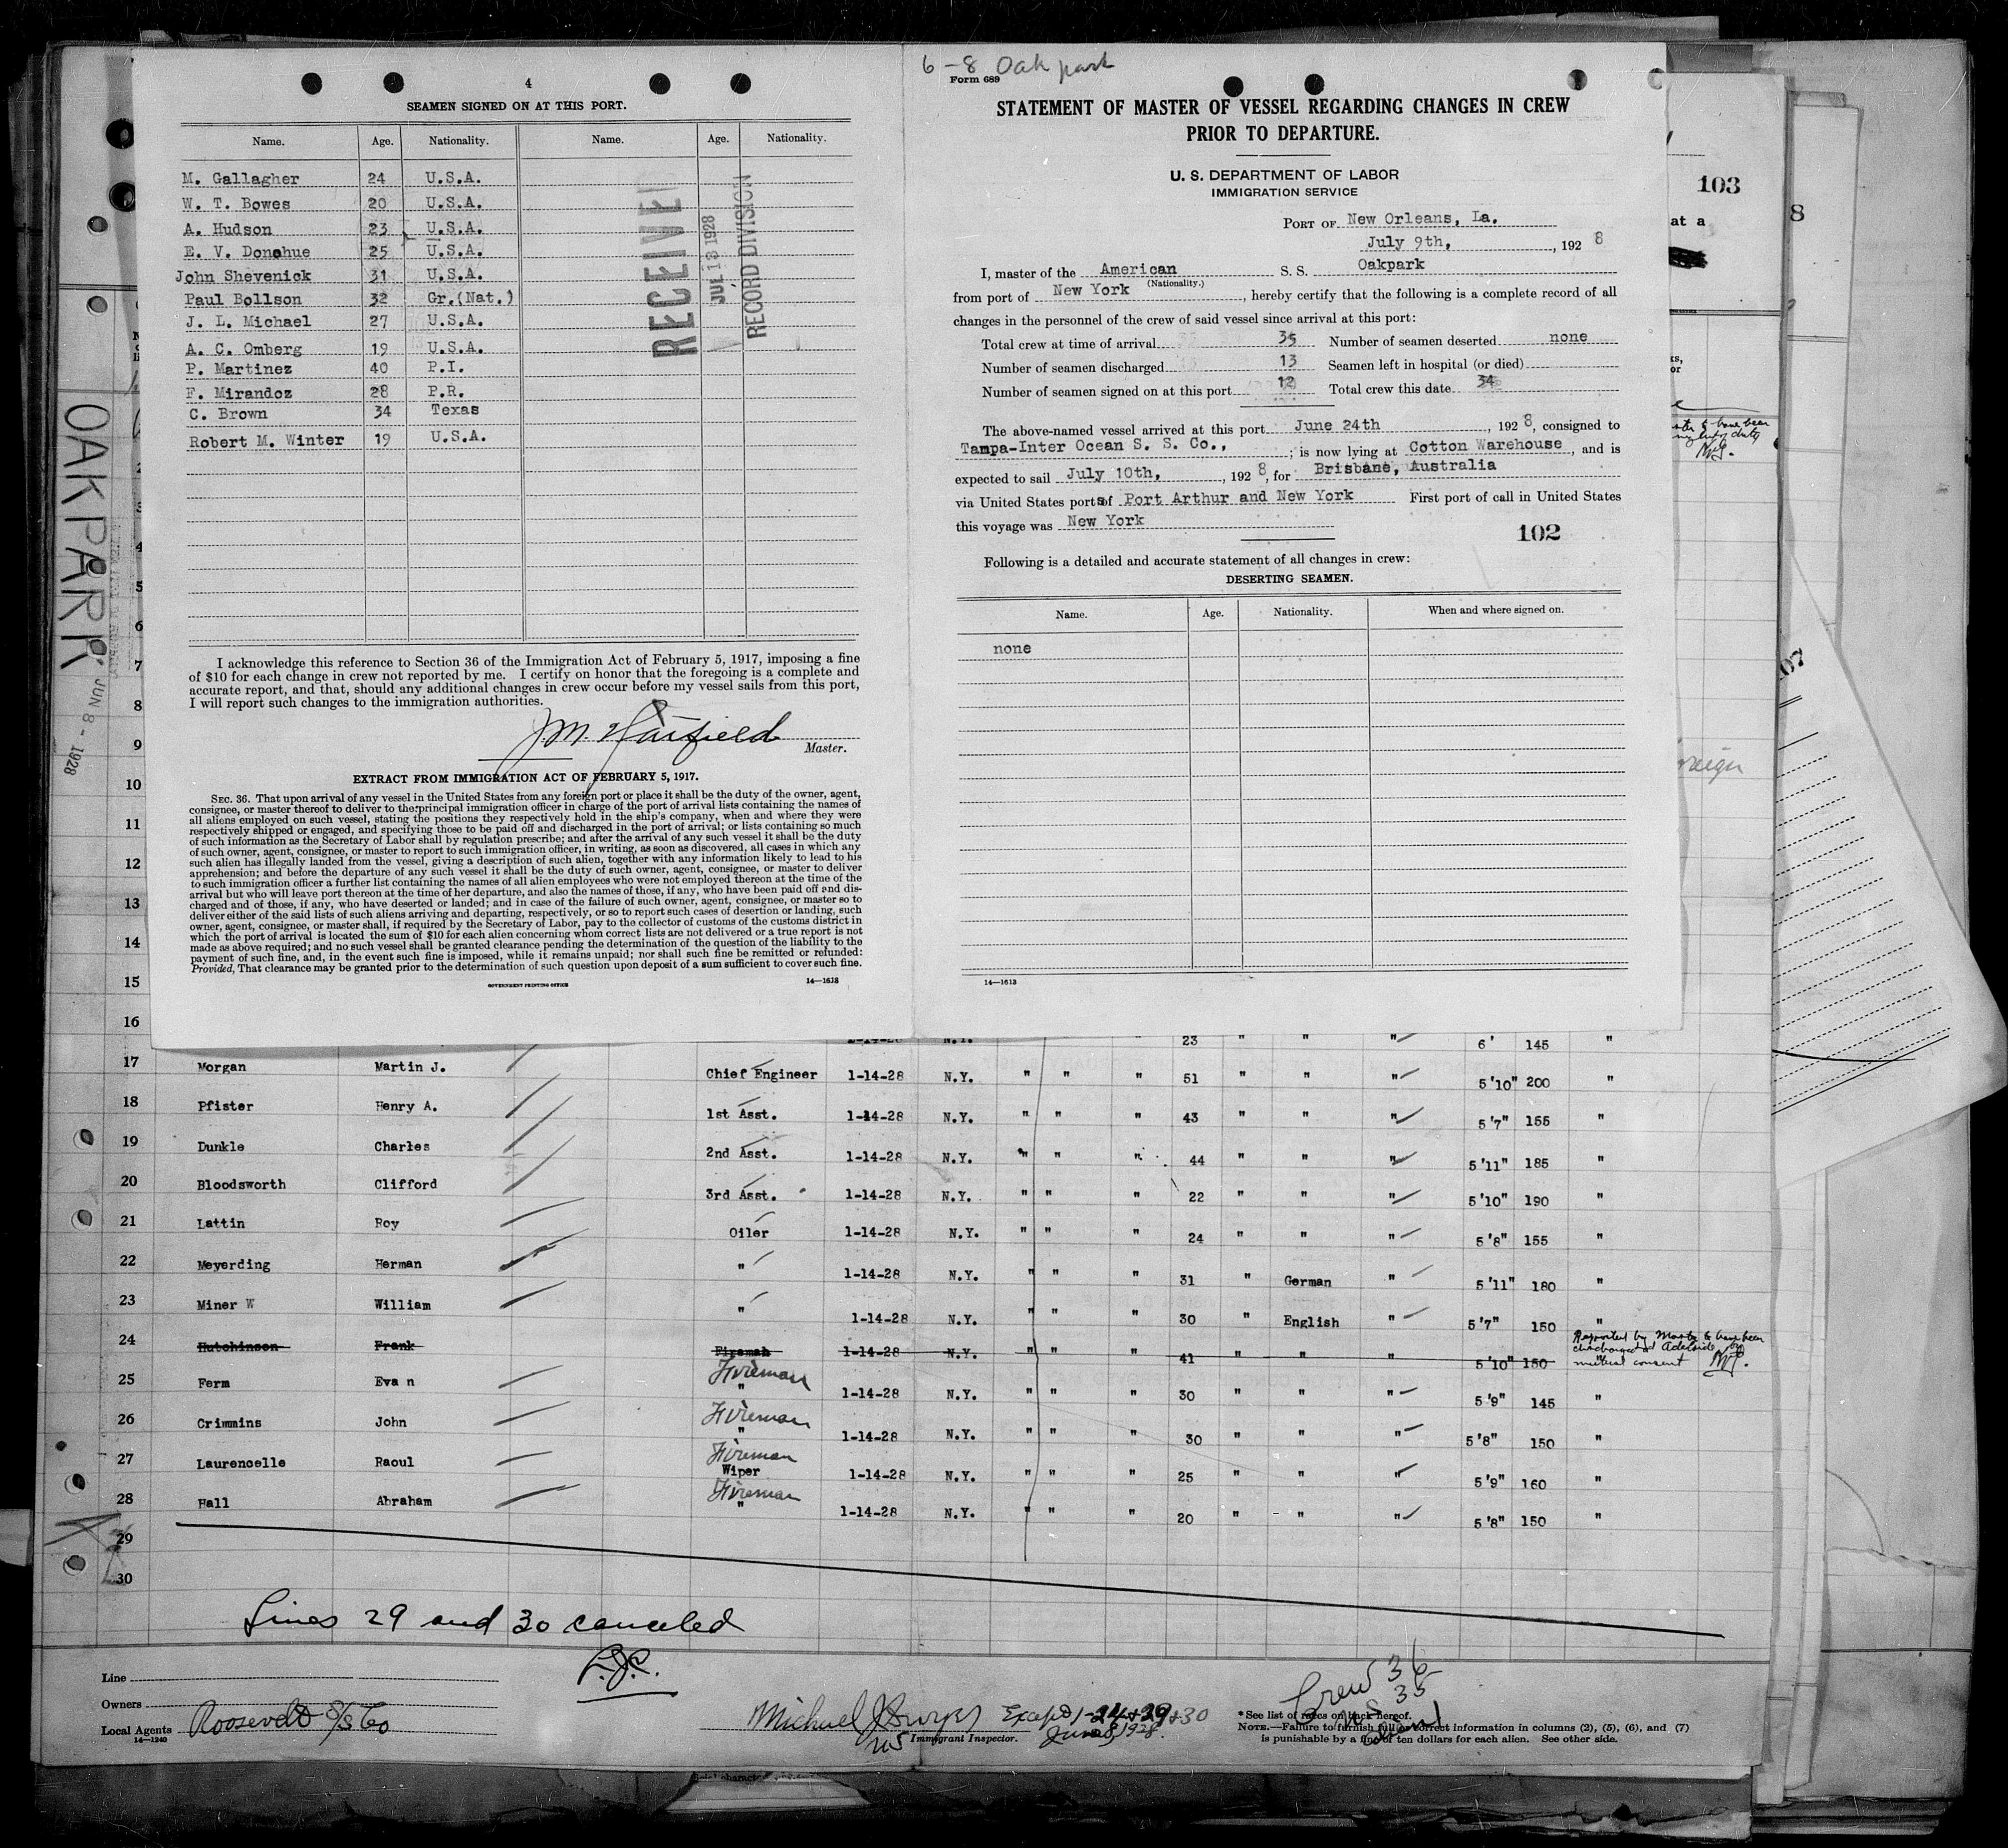 4
SEAMEN SIGNED ON AT THIS PORT.
Name. Age. Nationality. Name. Age. Nationality.
M. Gallagher 24 U.S.A.
W. T. Bowes 20 U.S.A.
A. Hudson 23 U.S.A.
E. V. Donohue 25 U.S.A.
John Shevenick 31 U.S.A.
Paul Bollson 32 Gr.(Nat.)
J. L. Michael 27 U.S.A.
A. C. Omberg 19 U.S.A.
P. Martinez 40 P.I.
F. Mirandoz 28 P.R.
C. Brown 34 Texas
Robert M. Winter 19 U.S.A.
RECEIVED
JUL 13 1928
RECORD DIVISION
I acknowledge this reference to Section 36 of the Immigration Act of February 5, 1917, imposing a fine
of $10 for each change in crew not reported by me. I certify on honor that the foregoing is a complete and
accurate report, and that, should any additional changes in crew occur before my vessel sails from this port,
I will report such changes to the immigration authorities.
Master.
EXTRACT FROM IMMIGRATION ACT OF FEBRUARY 5, 1917.
SEC. 36. That upon arrival of any vessel in the United States from any foreign port or place it shall be the duty of the owner, agent,
consignee, or master thereof to deliver to the principal immigration officer in charge of the port of arrival lists containing the names of
all aliens employed on such vessel, stating the positions they respectively hold in the ship's company, when and where they were
respectively shipped or engaged, and specifying those to be paid off and discharged in the port of arrival; or lists containing so much
of such information as the Secretary of Labor shall by regulation prescribe; and after the arrival of any such vessel it shall be the duty
of such owner, agent, consignee, or master to report to such immigration officer, in writing, as soon as discovered, all cases in which any
such alien has illegally landed from the vessel, giving a description of such alien, together with any information likely to lead to his
apprehension; and before the departure of any such vessel it shall be the duty of such owner, agent, consignee, or master to deliver
to such immigration officer a further list containing the names of all alien employees who were not employed thereon at the time of the
arrival but who will leave port thereon at the time of her departure, and also the names of those, if any, who have been paid off and dis-
charged and of those, if any, who have deserted or landed; and in case of the failure of such owner, agent, consignee, or master so to
deliver either of the said lists of such aliens arriving and departing, respectively, or so to report such cases of desertion or landing, such
owner, agent, consignee, or master shall, if required by the Secretary of Labor, pay to the collector of customs of the customs district in
which the port of arrival is located the sum of $10 for each alien concerning whom correct lists are not delivered or a true report is not
made as above required; and no such vessel shall be granted clearance pending the determination of the question of the liability to the
payment of such fine, and, in the event such fine is imposed, while it remains unpaid; nor shall such fine be remitted or refunded:
Provided, That clearance may be granted prior to the determination of such question upon deposit of a sum sufficient to cover such fine.
GOVERNMENT PRINTING OFFICE 14—1613
6-8 Oakpark
Form 689
STATEMENT OF MASTER OF VESSEL REGARDING CHANGES IN CREW
PRIOR TO DEPARTURE.
U. S. DEPARTMENT OF LABOR
IMMIGRATION SERVICE
PORT OF New Orleans, La.
July 9th, , 192 8
I, master of the American S. S. Oakpark
(Nationality.)
from port of New York , hereby certify that the following is a complete record of all
changes in the personnel of the crew of said vessel since arrival at this port:
Total crew at time of arrival 35 Number of seamen deserted none
Number of seamen discharged 13 Seamen left in hospital (or died)
Number of seamen signed on at this port 12 Total crew this date 34
The above-named vessel arrived at this port June 24th , 192 8, consigned to
Tampa-Inter Ocean S. S. Co., ; is now lying at Cotton Warehouse , and is
expected to sail July 10th, , 192 8, for Brisbane, Australia
via United States ports of Port Arthur and New York First port of call in United States
this voyage was New York
102
Following is a detailed and accurate statement of all changes in crew:
DESERTING SEAMEN.
Name. Age. Nationality. When and where signed on.
none
14—1613
103
at a
8
OAKPARK
JUN 8 - 1928
4
5
6
7
8
9
10
11
12
13
14
15
16 23 " " " 6' 145 "
17 Morgan Martin J. Chief Engineer 1-14-28 N.Y. " " " 51 " " " 5'10" 200 "
18 Pfister Henry A. 1st Asst. 1-14-28 N.Y. " " " 43 " " " 5'7" 155 "
19 Dunkle Charles 2nd Asst. 1-14-28 N.Y. " " " 44 " " " 5'11" 185 "
20 Bloodsworth Clifford 3rd Asst. 1-14-28 N.Y. " " " 22 " " " 5'10" 190 "
21 Lattin Roy Oiler 1-14-28 N.Y. " " " 24 " " " 5'8" 155 "
22 Meyerding Herman " 1-14-28 N.Y. " " " 31 " German " 5'11" 180 "
23 Miner W William " 1-14-28 N.Y. " " " 30 " English " 5'7" 150 "
24 Hutchinson Frank Fireman 1-14-28 N.Y. " " " 41 " " " 5'10" 150 Reported by Master to have been discharged at Adelaide by mutual consent
25 Ferm Evan Fireman " 1-14-28 N.Y. " " " 30 " " " 5'9" 145 "
26 Crimmins John Fireman " 1-14-28 N.Y. " " " 30 " " " 5'8" 150 "
27 Laurencelle Raoul Fireman Wiper 1-14-28 N.Y. " " " 25 " " " 5'9" 160 "
28 Hall Abraham Fireman " 1-14-28 N.Y. " " " 20 " " " 5'8" 150 "
29
30
Lines 29 and 30 canceled
Line
Owners
Local Agents Roosevelt S/S Co
14—1240
Michael
Immigrant Inspector.
Crew 36
35
*See list of races on back hereof.
NOTE.—Failure to furnish full or correct information in columns (2), (5), (6), and (7)
is punishable by a fine of ten dollars for each alien. See other side.